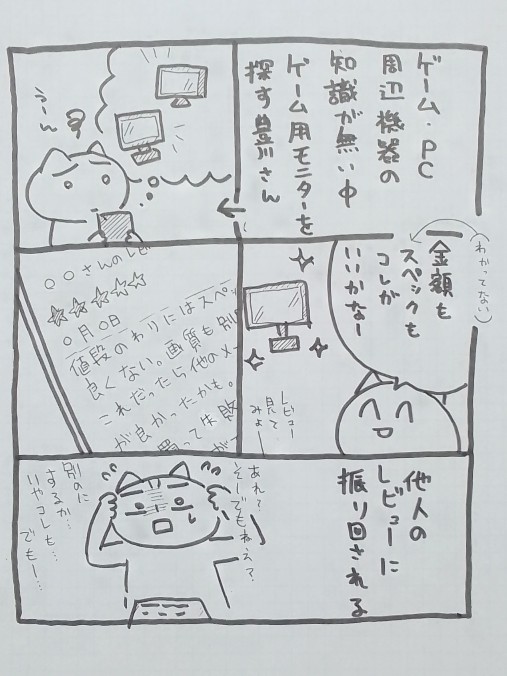 ゲーム・PC
周辺機器の
知識が無い中
ゲーム用モニターを
探す豊川さん
うーん
(わかってない)
金額も
スペックも
コレが
いいかなー
レビュー
見て
みよー
○○さんのレビ
☆☆☆☆☆
○月○日
値段のわりにはスペッ
良くない。画質も別
これだったら他のメー
が良かったかも。
買って失敗
が一
他人の
レビューに
振り回される
あれ?
そーでもねぇ?
別のに
するか…
いやコレも…
でもー…